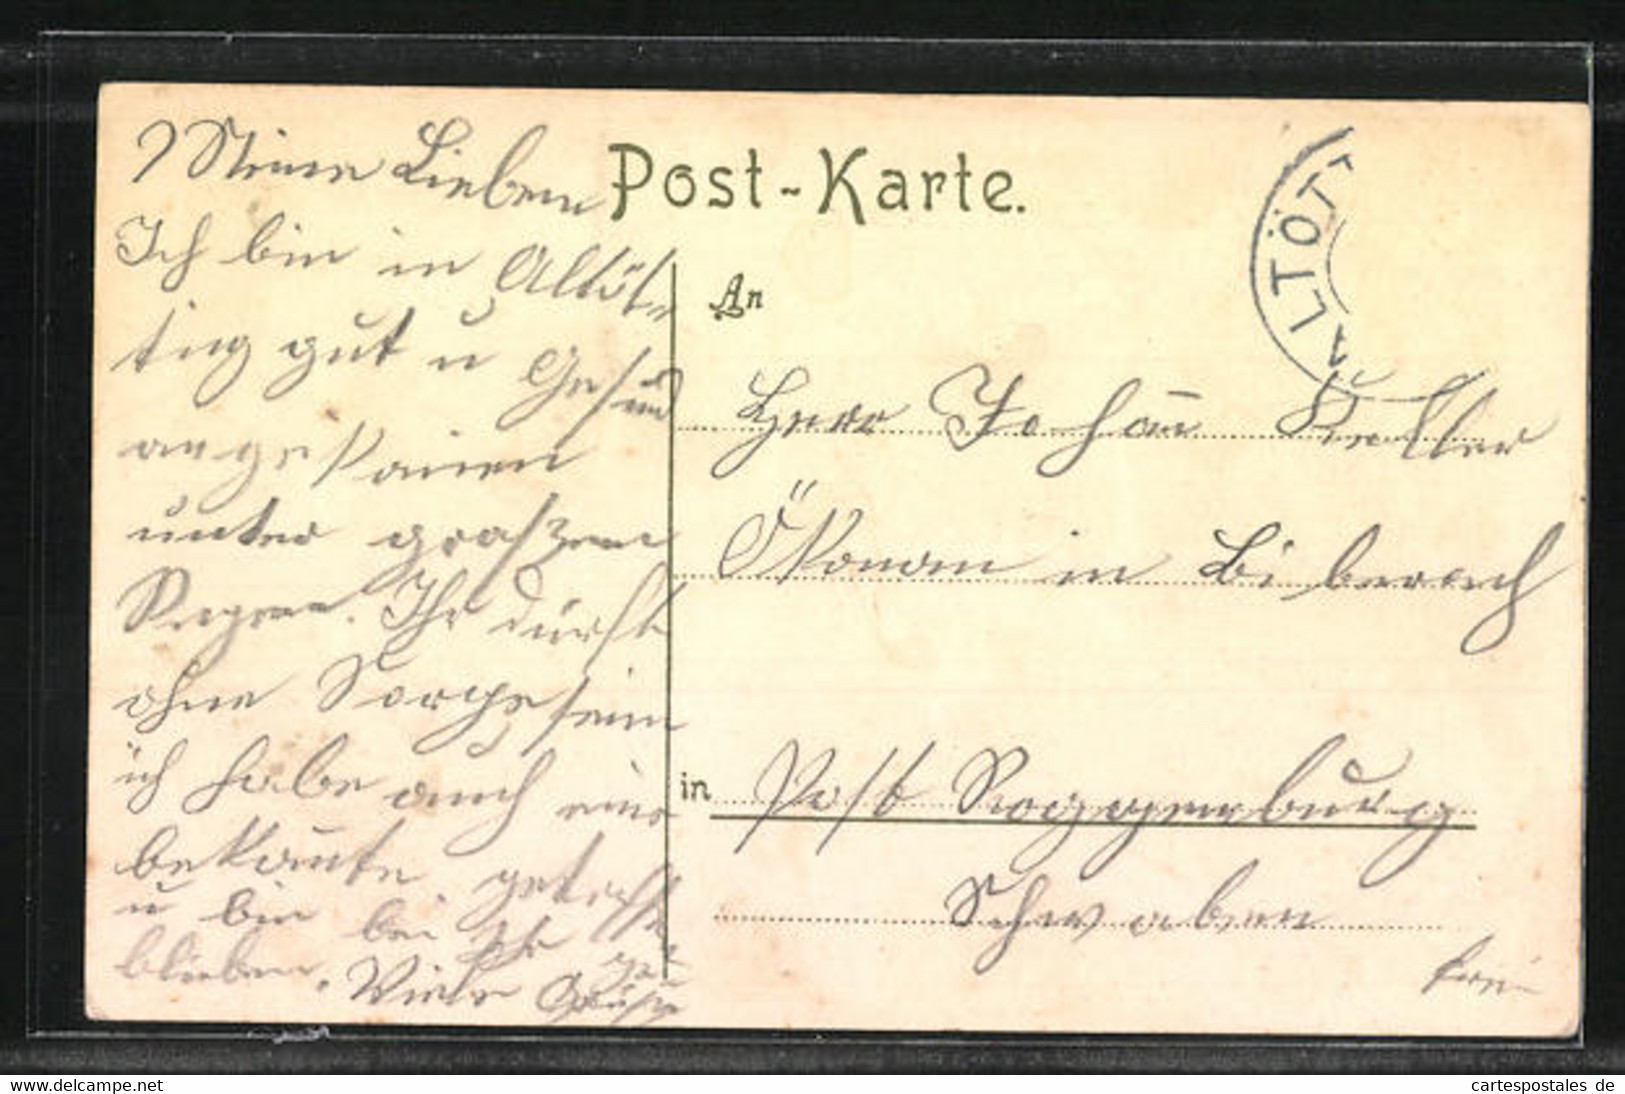 Meine Lieben
Ich bin in Altöt-
ting gut u Gesund
angekom̄en
unter großem
Regen. Ihr dürft
ohne Sorge sein
ich habe auch eine
bekan̄te getroffen
u bin bei Ihr ge-
blieben. Viele Grüße
Post-Karte.
ALTÖTT
An
Herr Johan̄ Keller
Ökonom in Biberach
in Post Roggenburg
Schwaben
www.delcampe.net
cartespostales de